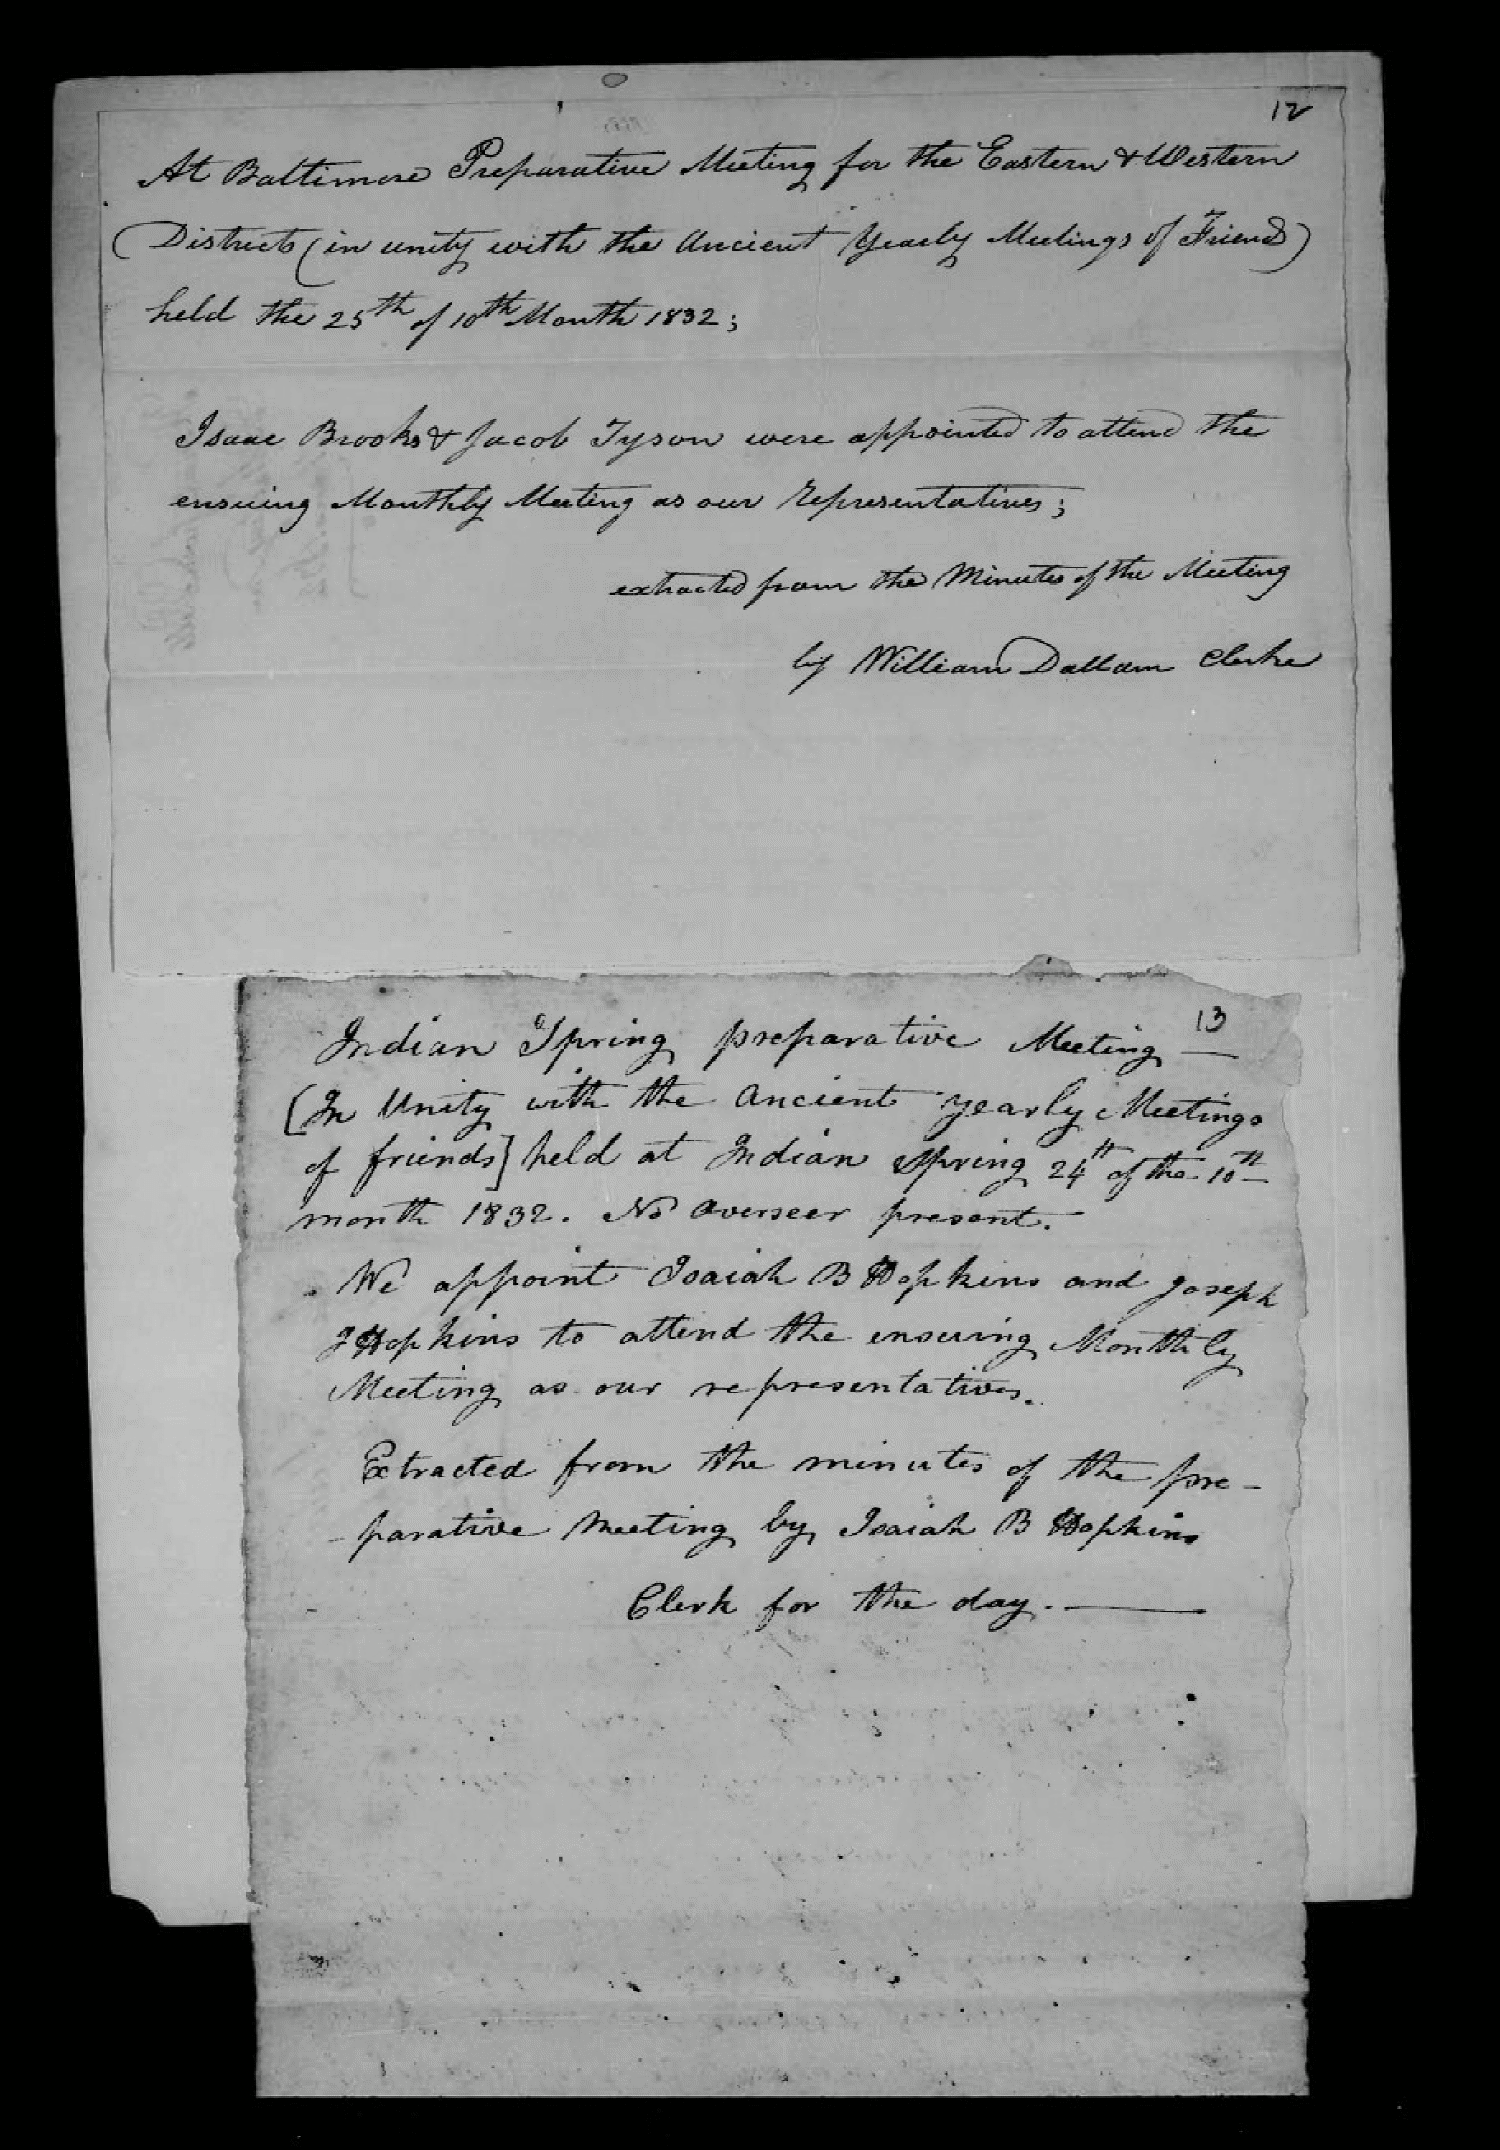 12
At Baltimore Preparative Meeting for the Eastern & Western
Districts (in unity with the Ancient Yearly Meetings of Friends)
held the 25th of 10th Month 1832;
Isaac Brooks & Jacob Tyson were appointed to attend the
ensuing Monthly Meeting as our representatives;
extracted from the Minutes of the Meeting
by William Dallam Clerke
13
Indian Spring preparative Meeting —
[In Unity with the Ancient yearly Meetings
of friends] held at Indian Spring 24th of the 10th
month 1832. No overseer present.
We appoint Isaiah B Hopkins and Joseph
J Hopkins to attend the ensuing Monthly
Meeting as our representatives.
Extracted from the minutes of the pre-
-parative Meeting by Isaiah B Hopkins
Clerk for the day. —